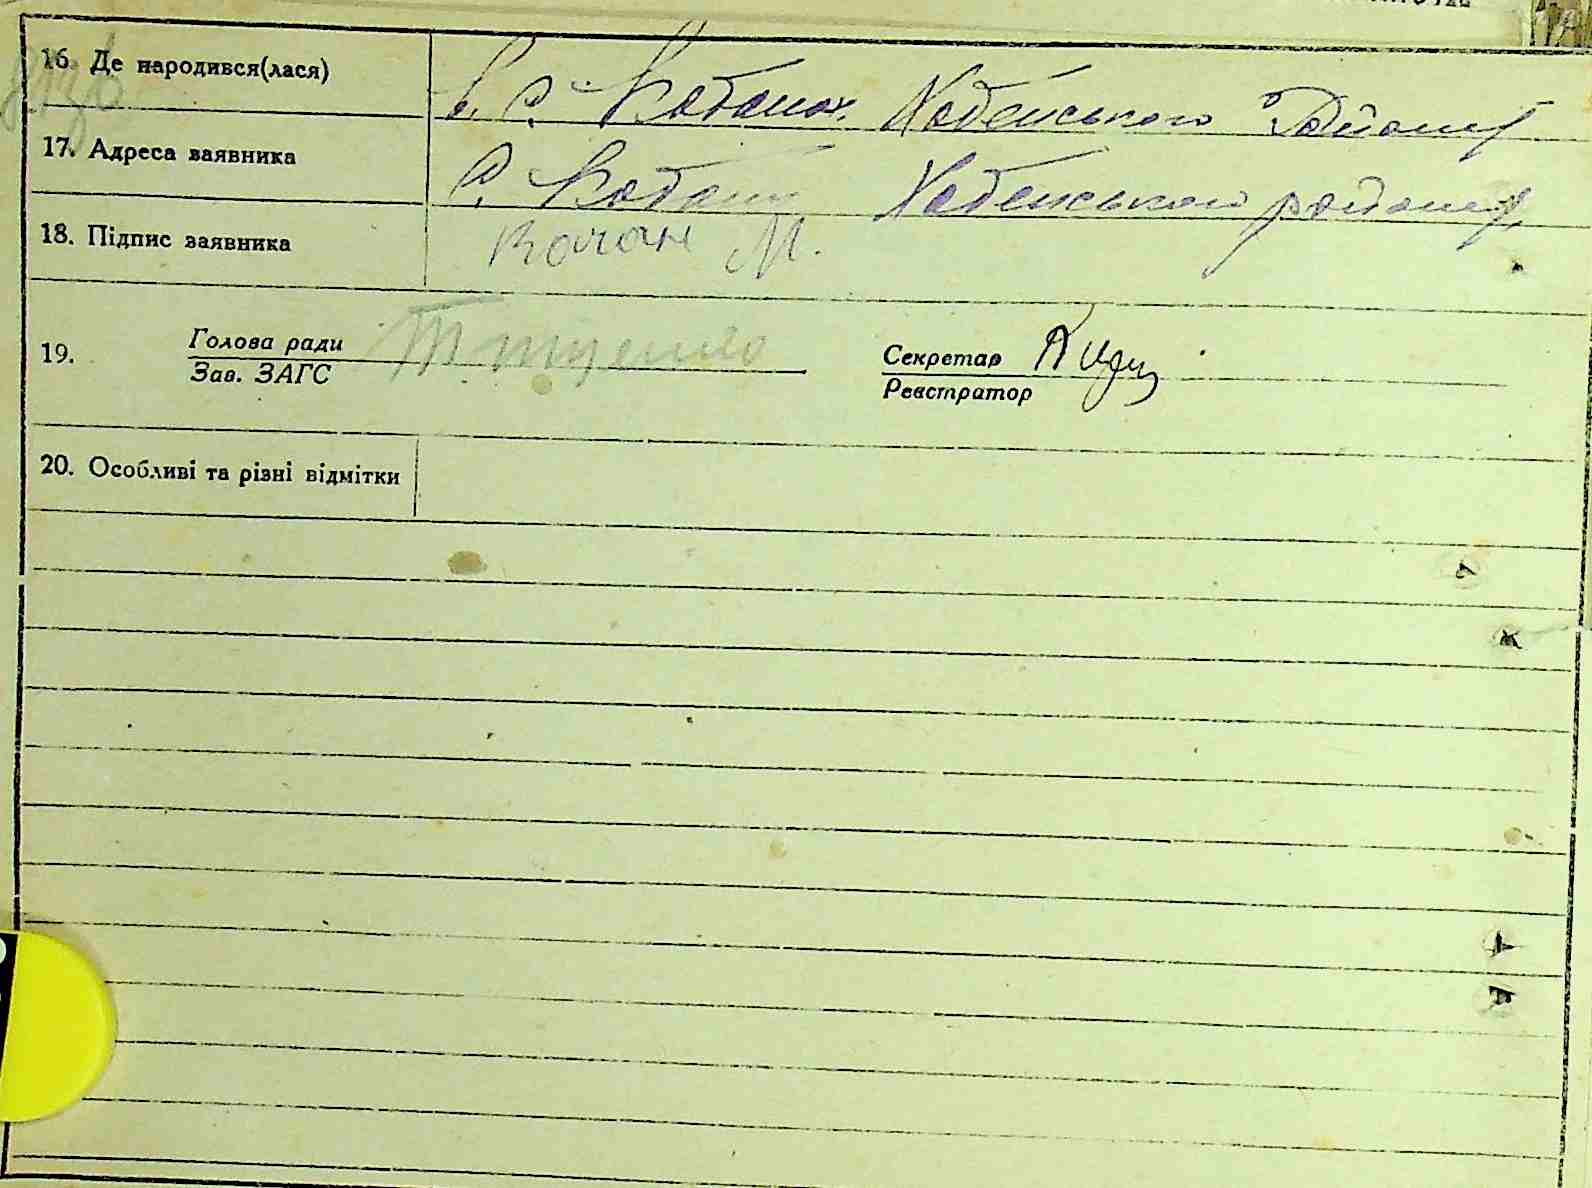 16. Де народився(лася) в с. Кабанах. Хабенського Району
17. Адреса заявника с. Кабани Хабенського району
18. Підпис заявника М.
19. Голова ради Секретар
Зав. ЗАГС Реєстратор
20. Особливі та різні відмітки